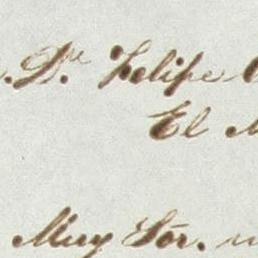 Dr. Felipe
El
Muy Sor.